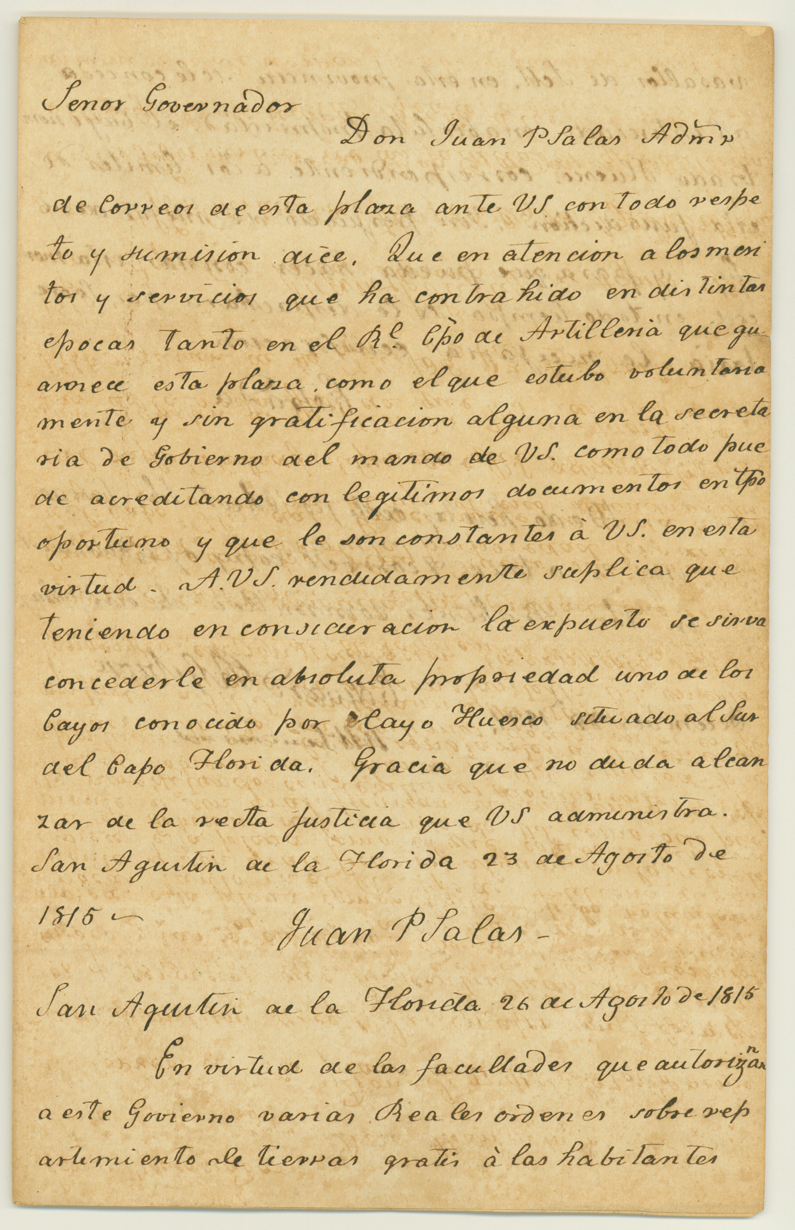 Senor Governador
Don Juan P Salas Admr
de Correos de esta plaza ante VS con todo respe
to y sumision dice. Que en atencion a los meri
tos y servicios que ha contrahido en distintas
epocas tanto en el Rl. Cpo de Artilleria que gu-
arnece esta plaza, como el que estubo voluntaria
mente y sin gratificacion alguna en la secreta
ria de Gobierno del mando de VS. como todo pue
de acreditando con legitimos documentos en tpo
oportuno y que le son constantes à VS. en esta
virtud. A.VS. rendidamente suplica que
teniendo en consideracion lo expuesto se sirva
concederle en absoluta propriedad uno de los
Cayos conocido por Cayo Huesco situado al Sur
del Capo Florida. Gracia que no duda alcan
zar de la recta justicia que VS administra.
San Agustin de la Florida 23 de Agosto de
1815 ~
Juan P Salas -
San Agustin de la Florida 26 de Agosto de 1815
En virtud de las facultades que autorizan
a este Govierno varias Reales ordenes sobre rep
artimiento de tierras gratis à las habitantes